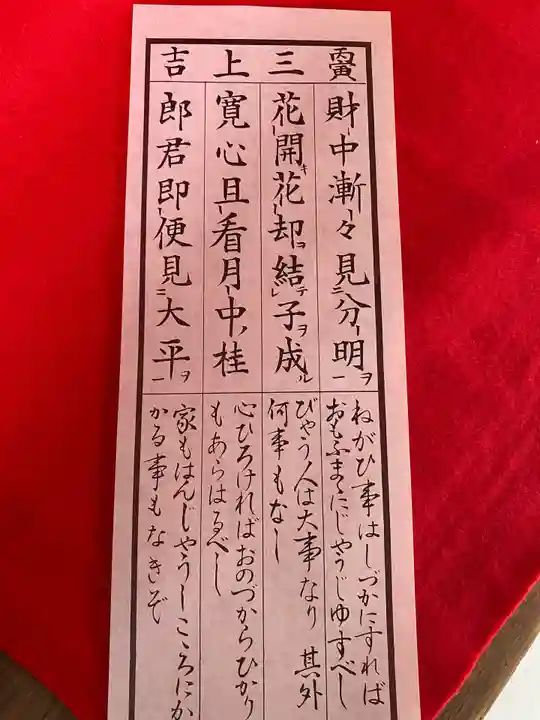 丙寅 三上吉
財中漸々見二分明一ヲ
花開キ花却ヲ結テレ子ヲ成ル
寛心且看月中ノ桂
郎君即便見二大平一ヲ
ねがひ事はしづかにすれば
おもふまゝにじやうじゆすべし
びやう人は大事なり 其外
何事もなし
心ひろければおのづからひかり
もあらはるべし
家もはんじやうしこゝろにか
かる事もなきぞ